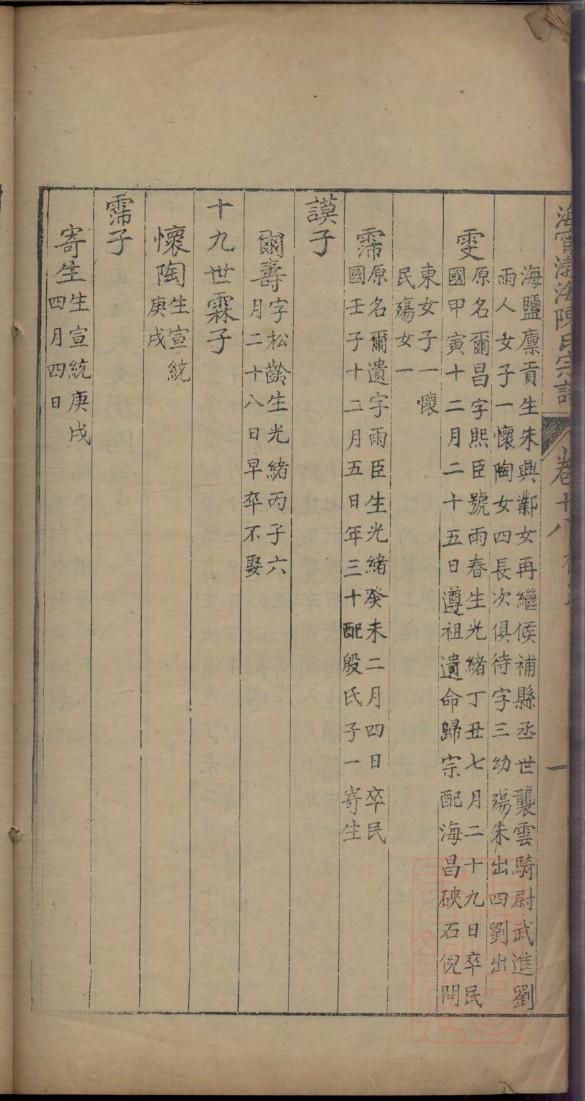 海寧渤海陳氏宗譜
卷十八
海鹽廩貢生朱興鄴女再繼候補縣丞世襲雲騎尉武進劉
雨人女子一懷陶女四長次俱待字三幼殤朱出四劉出
雯
原名爾昌字熙臣號雨春生光緒丁丑七月二十九日卒民
國甲寅十二月二十五日遵祖遺命歸宗配海昌硤石倪問
東女子一懷
民殤女一
霈
原名爾遺字雨臣生光緒癸未二月四日卒民
國壬子十二月五日年三十配殷氏子一寄生
謨子
爾壽
字松齡生光緒丙子六
月二十八日早卒不娶
十九世霖子
懷陶
生宣統
庚戌
霈子
寄生
生宣統庚戌
四月四日